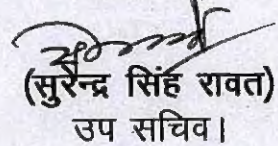 (सुरेन्द्र सिंह रावत)
उप सचिव।